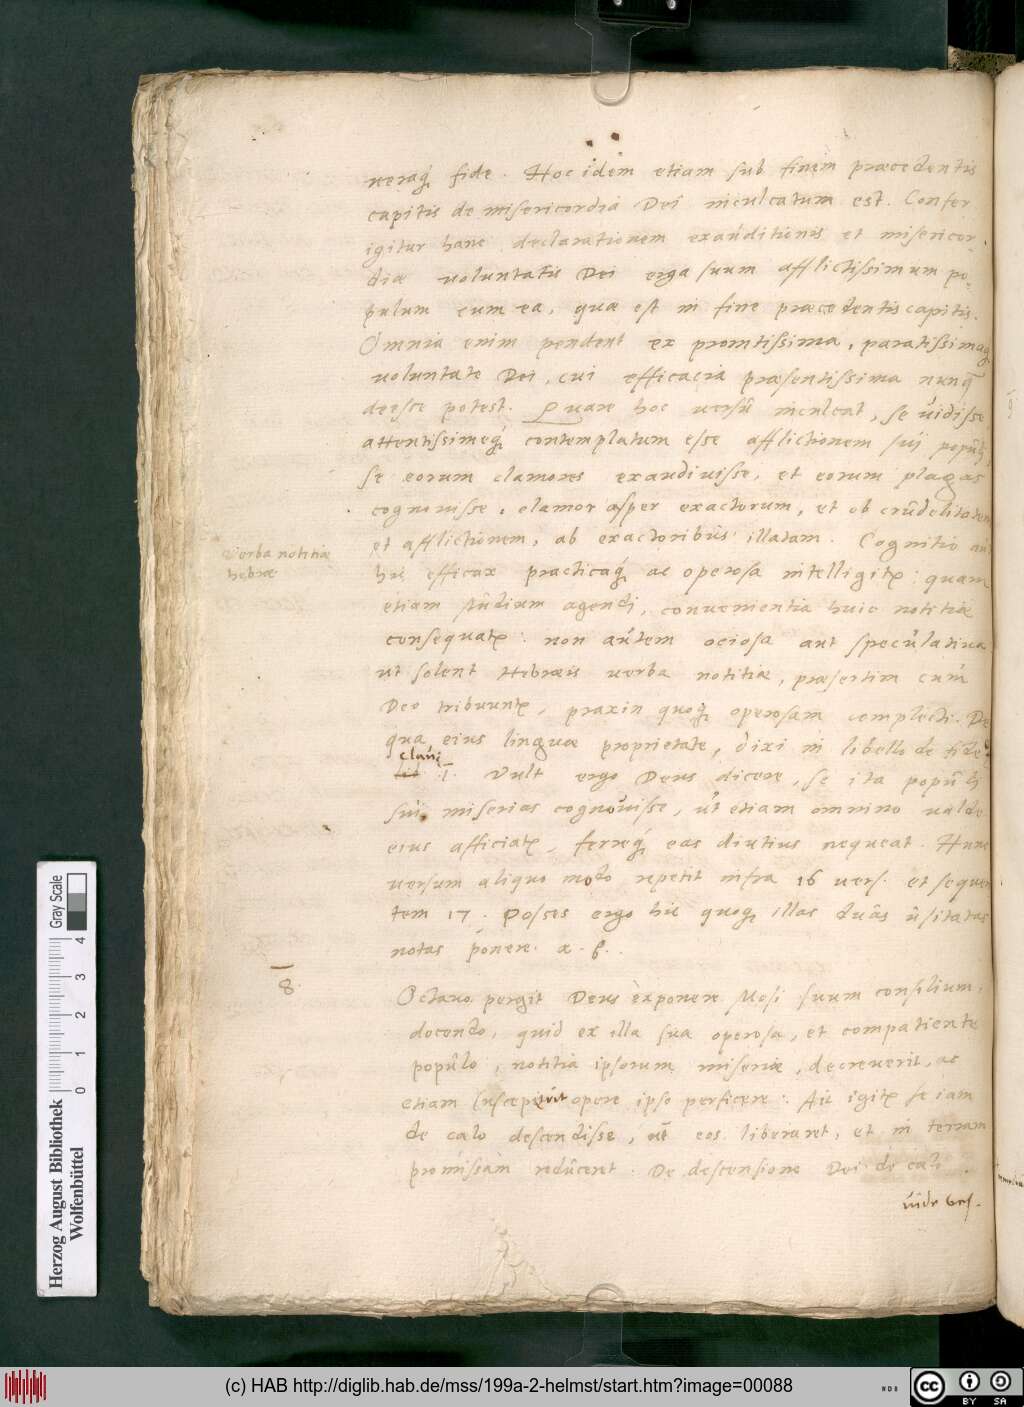 ueraq́; fide. Hoc idem etiam sub finem præcedentis
capitis de misericordia Dei inculcatum est. Confer
igitur hanc declarationem exauditionis et misericor
diæ uoluntatis Dei erga suum afflictissimum po-
pulum cum ea, quæ est in fine præcedentis capitis.
Omnia enim pendent ex promtissima, paratissimaq;
uoluntate Dei, cui efficacia præsentissima nunq̃
deesse potest. Quare hoc uersu inculcat, se uidisse
attentissimeq́; contemplatum esse afflictionem sui populi,
se eorum clamores exaudiuisse, et eorum plagas
cognouisse, clamor asper exactorum, et ob crudelitatem
et afflictionem, ab exactoribus illatam. Cognitio au
Verba notitiæ
hebræ
hic efficax practicaq́; ac operosa intelligitr: quam
etiam studium agendi, conuenientia huic notitiæ
consequatr: non autem ociosa aut speculatiua
ut solent Hebræis uerba notitiæ, præsertim cum
Deo tribuuntr, praxin quoq; operosam complecti. De
qua eius linguæ proprietate, dixi in libello de fide
Claui
1. Vult ergo Deus dicere, se ita populi
sui miserias cognouisse, ut etiam omnino ualde
eius afficiatr, ferreq́; eas diutius nequeat. Hunc
uersum aliquo modo repetit infra 16 uers. et sequen
tem 17. Posses ergo hic quoq; illas duas usitatas
notas ponere. α. β.
8.
Octauo pergit Deus exponere Mosi suum consilium,
docendo, quid ex illa sua operosa, et compatiente
populo, notitia ipsorum miseriæ, decreuerit, ac
etiam susceperit opere ipso perficere: Ait igitr se iam
de cælo descendisse, ut eos liberaret, et in terram
promissam reduceret. De descensione Dei de cæli
uide
Herzog August Bibliothek
Wolfenbüttel
0 1 2 3 4
Gray Scale
(c) HAB http://diglib.hab.de/mss/199a-2-helmst/start.htm?image=00088
cc BY SA